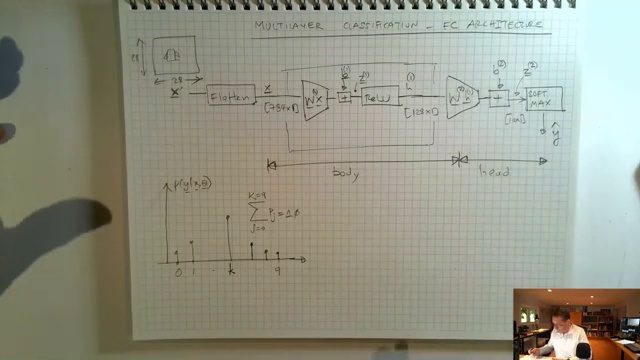 MULTILAYER CLASSIFICATION - FC ARCHITECTURE
28
28
X
Flatten
x
[784x1]
W⁽¹⁾x
b⁽¹⁾
+
z⁽¹⁾
ReLU
h⁽¹⁾
[128x1]
W⁽²⁾h⁽¹⁾
b⁽²⁾
+
z⁽²⁾
[10x1]
SOFT
MAX
ŷ
body
head
p(y|x,θ)
K=9
∑ Pj = 1.0
j=0
0 1 . k 9